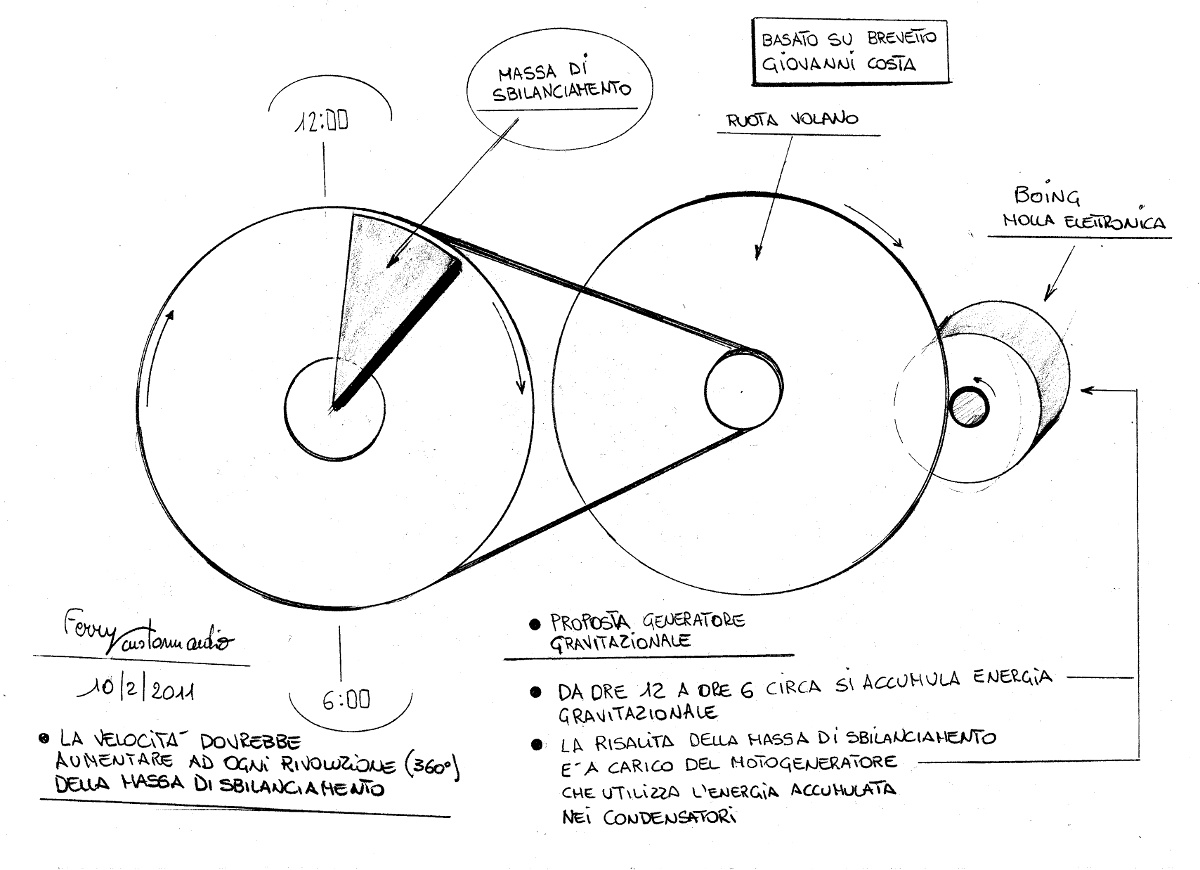 BASATO SU BREVETTO
GIOVANNI COSTA
MASSA DI
SBILANCIAMENTO
12:00
RUOTA VOLANO
BOING
MOLLA ELETTRONICA
Ferry
customaudio
10/2/2011
6:00
● LA VELOCITA' DOVREBBE
AUMENTARE AD OGNI RIVOLUZIONE (360°)
DELLA MASSA DI SBILANCIAMENTO
● PROPOSTA GENERATORE
GRAVITAZIONALE
● DA ORE 12 A ORE 6 CIRCA SI ACCUMULA ENERGIA
GRAVITAZIONALE
● LA RISALITA DELLA MASSA DI SBILANCIAMENTO
E' A CARICO DEL MOTOGENERATORE
CHE UTILIZZA L'ENERGIA ACCUMULATA
NEI CONDENSATORI